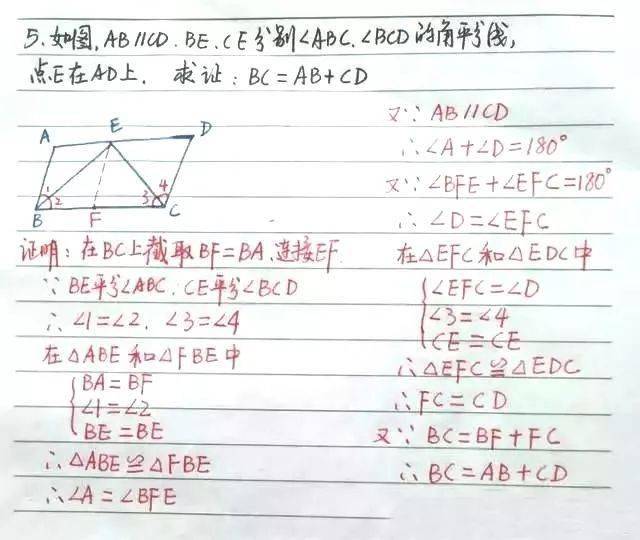 5.如图,AB∥CD.BE、CE分别∠ABC、∠BCD的角平分线,
点E在AD上. 求证:BC=AB+CD
A
E
D
1
2
3
4
B
F
C
证明:在BC上截取BF=BA、连接EF.
∵ BE平分∠ABC、CE平分∠BCD
∴∠1=∠2、∠3=∠4
在△ABE和△FBE中
BA=BF
∠1=∠2
BE=BE
∴△ABE≌△FBE
∴∠A=∠BFE
又∵ AB∥CD
∴∠A+∠D=180°
又∵ ∠BFE+∠EFC=180°
∴ ∠D=∠EFC
在△EFC和△EDC中
∠EFC=∠D
∠3=∠4
CE=CE
∴△EFC≌△EDC
∴FC=CD
又∵ BC=BF+FC
∴ BC=AB+CD